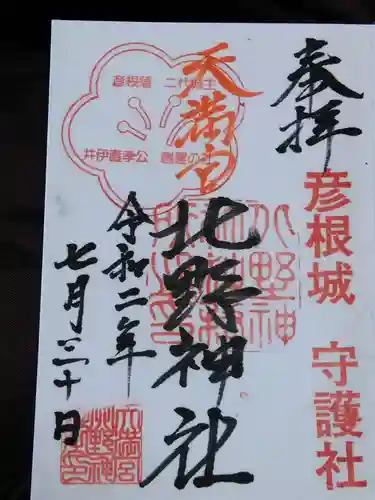 奉拝
彦根城 守護社
天満宮
北野神社
彦根藩 二代藩主
井伊直孝公
令和二年
七月三十日